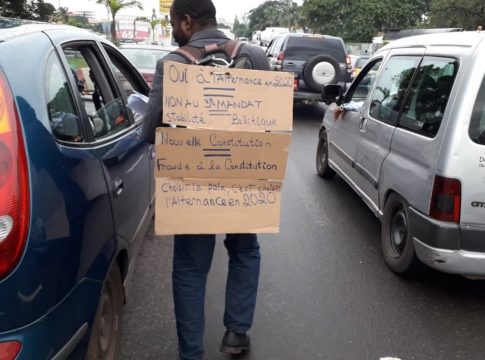 Oui à l'Alternance en 2020
=
NON AU 3è MANDAT
=
Stabilité Politique
Nouvelle Constitution
=
Fraude à la Constitution
Choisir la paix, c'est choisir
l'Alternance en 2020